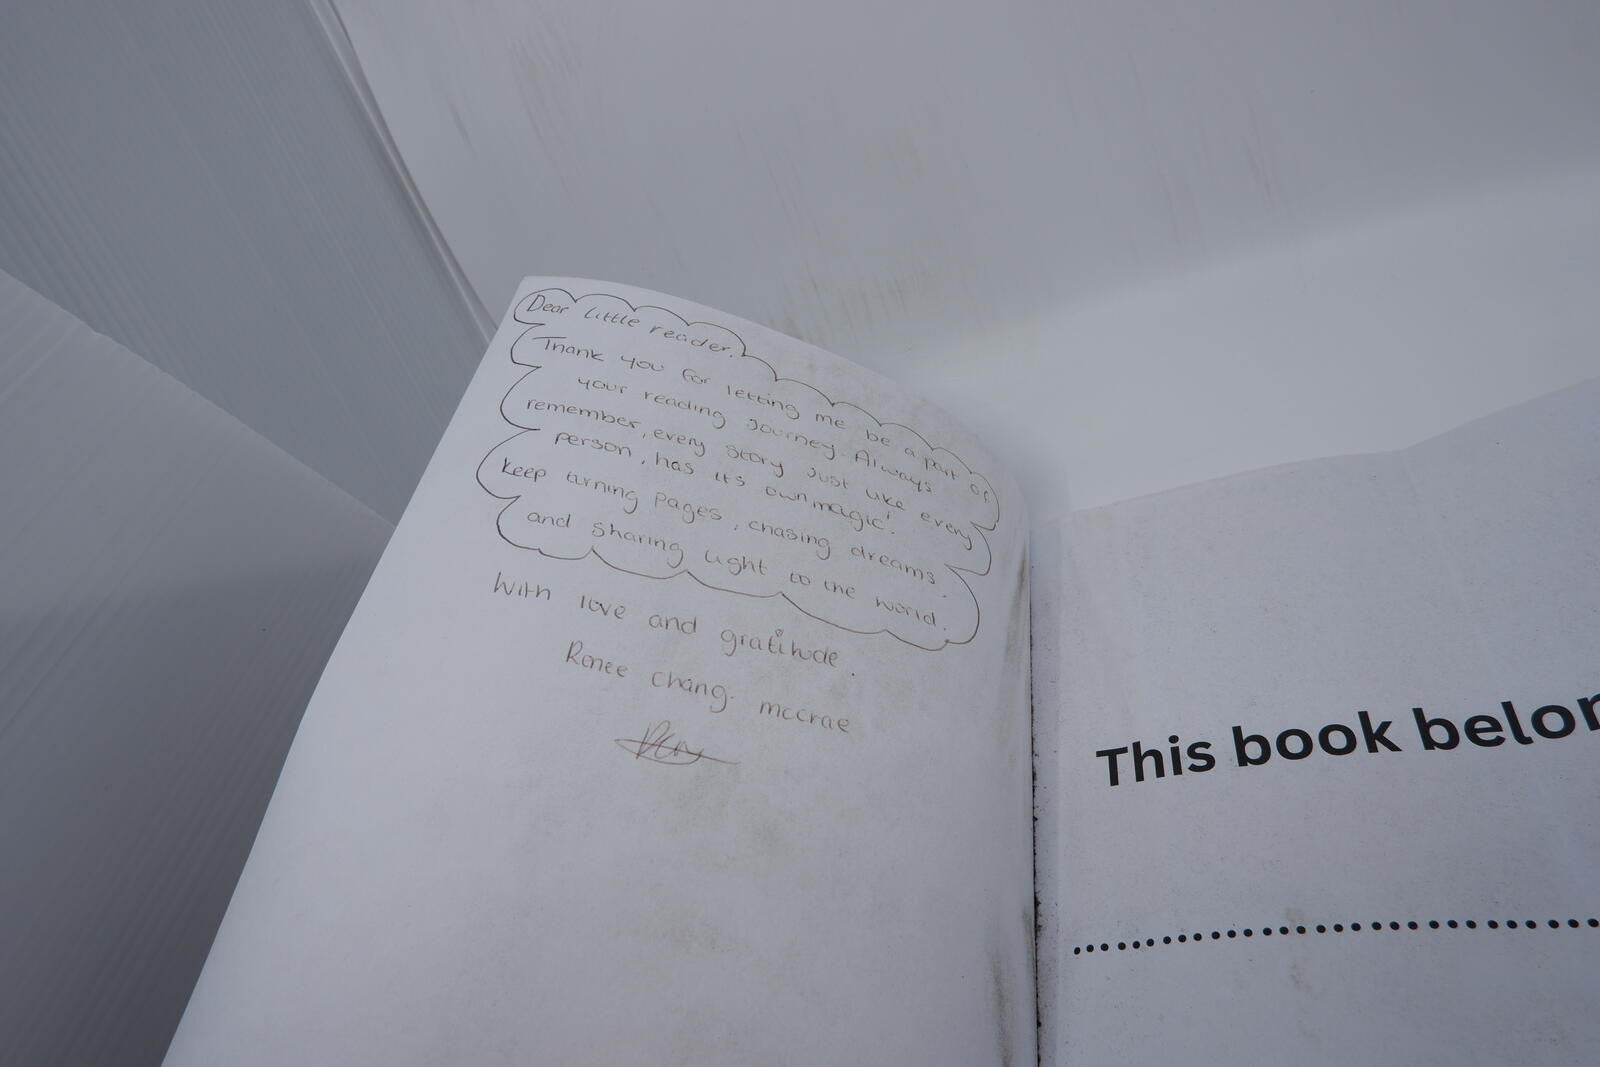 Dear little reader.
Thank you for letting me be a part of
your reading journey. Always
remember, every story just like every
person, has its own magic!
Keep turning pages, chasing dreams.
and sharing light to the world.
With love and gratitude.
Renee Chang- mccrae
This book belon